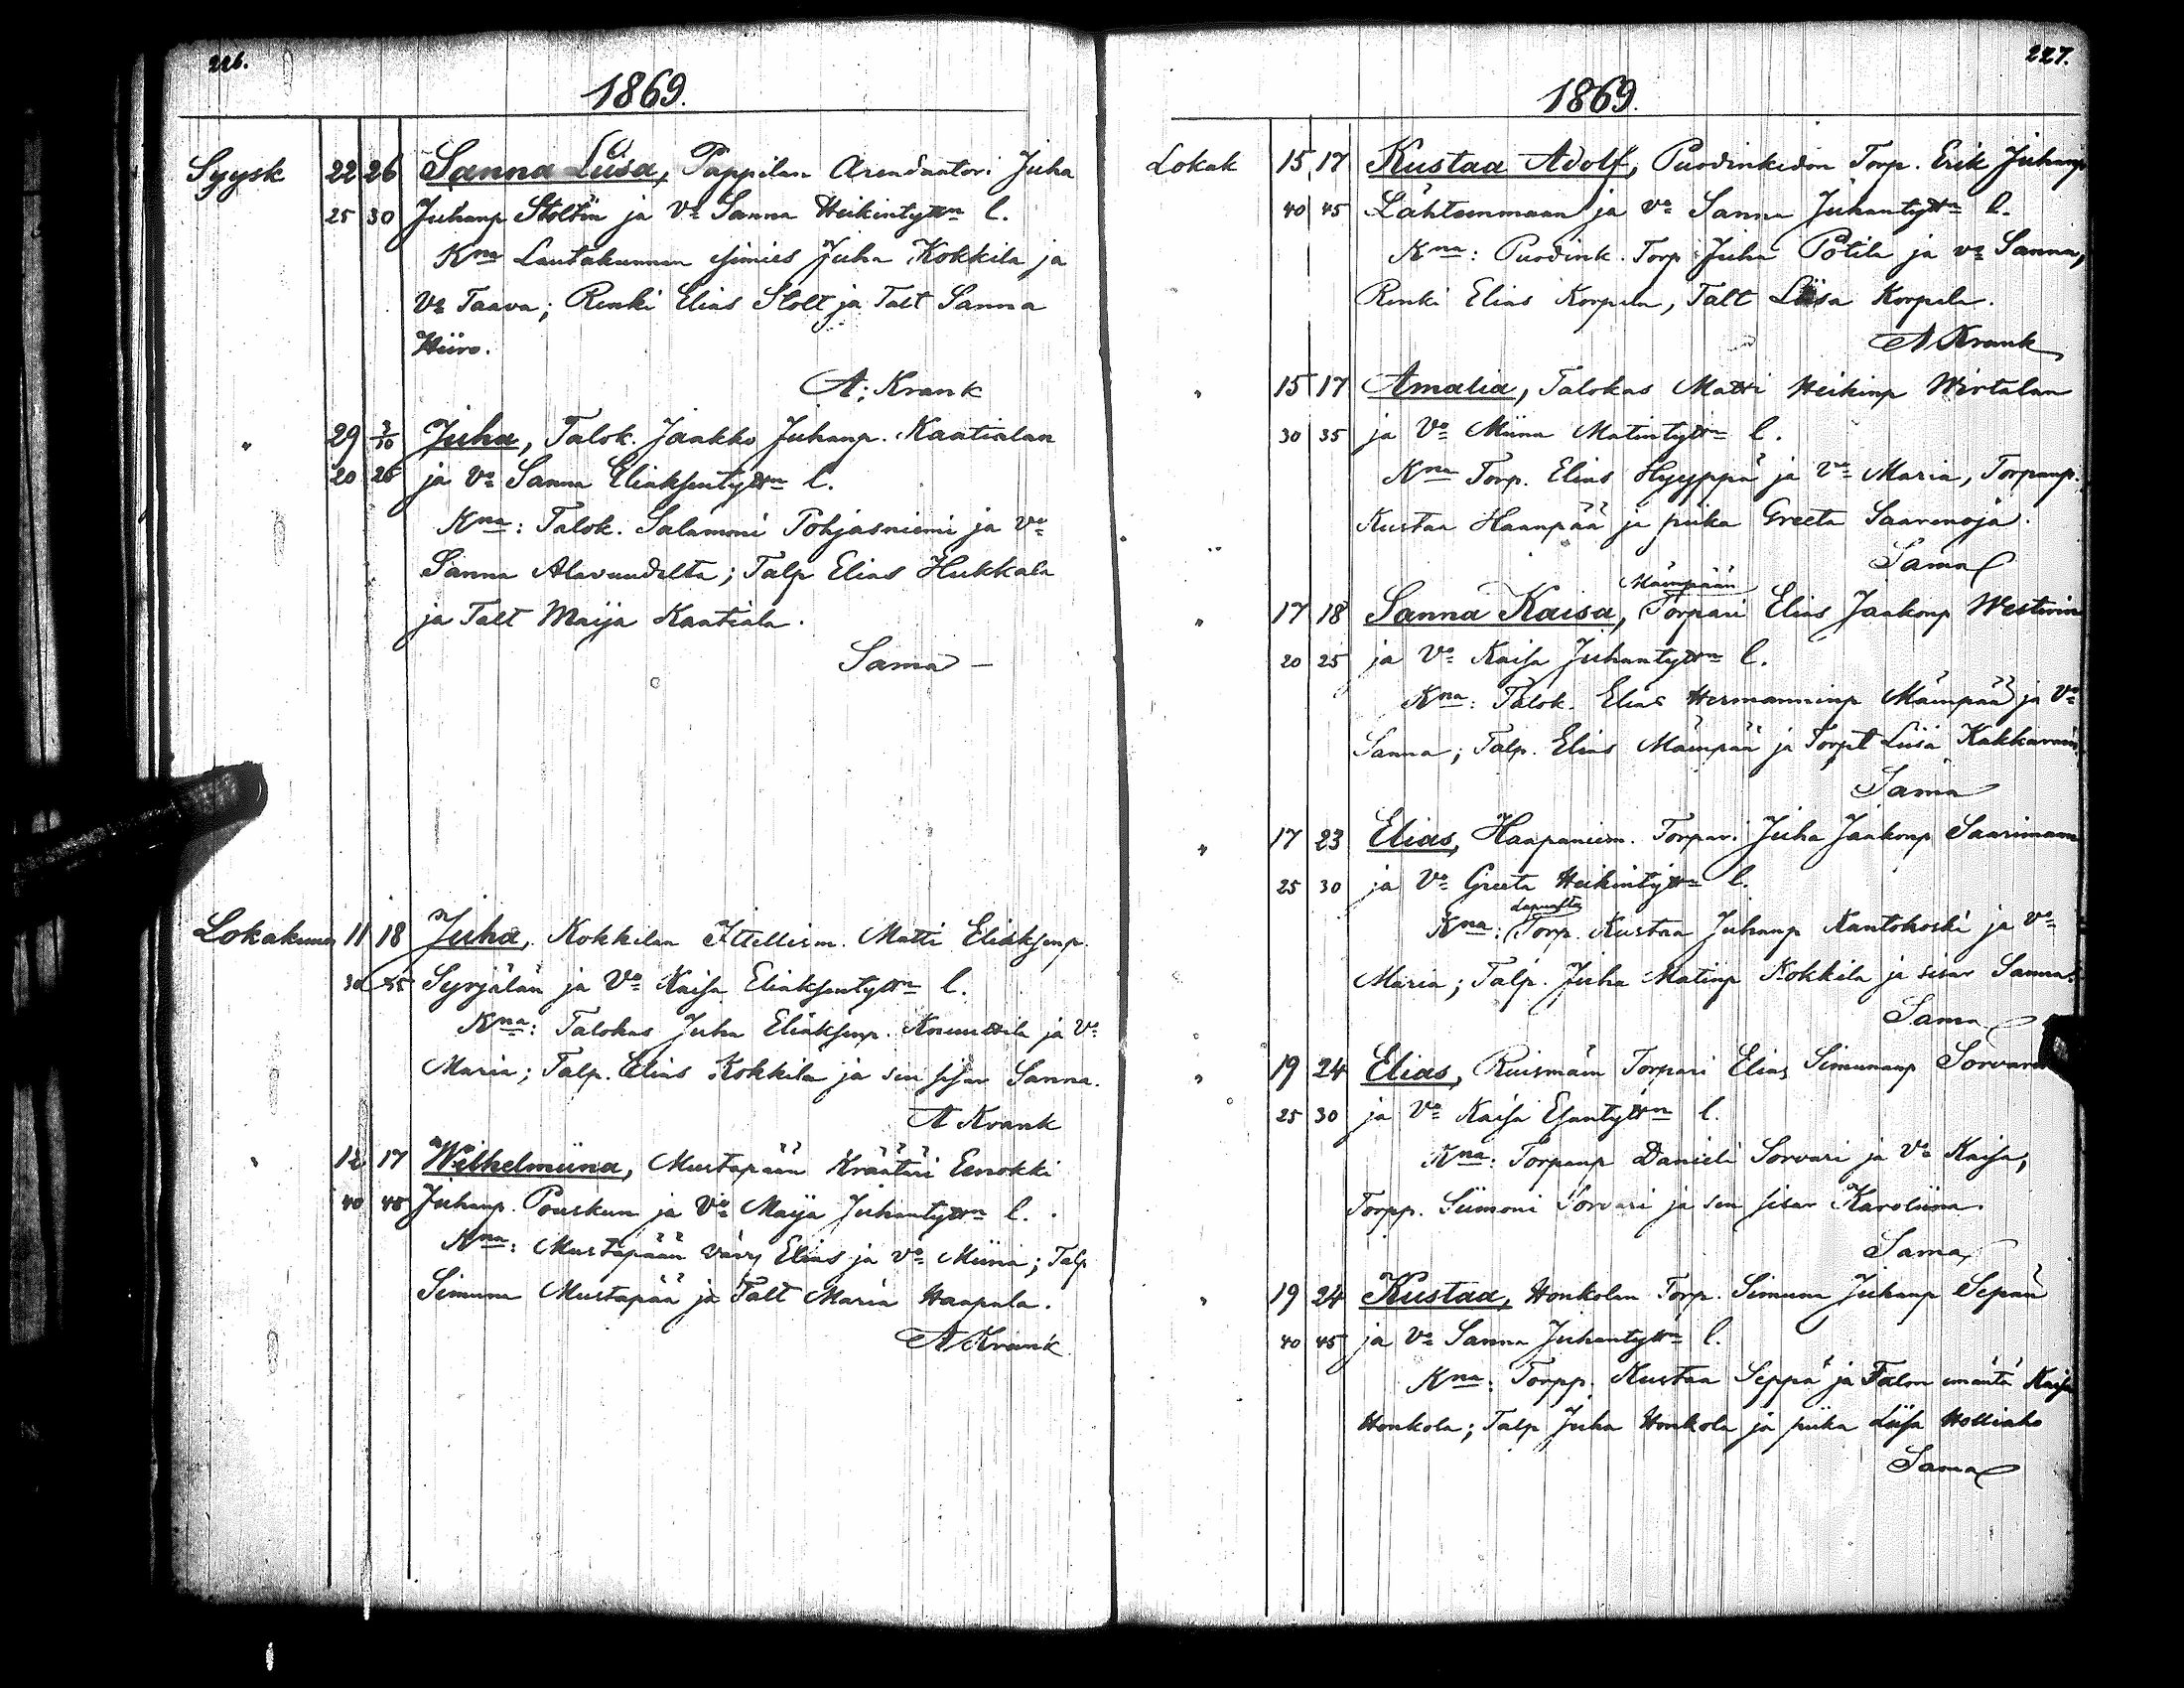 226.
1869.
Syysk 22 26 Sanna Liisa, Pappilan Arendaatori Juha
25 30 Juhanp Stoltin ja Vo Sanna Heikintyttn l.
Kna Lautakunnan esimies Juha Kokkila ja
Vo Taava; Renki Elias Stolt ja Talt Sanna
Hiiro.
A. Krank
" 29 3/10 Juha, Talok. Jaakko Juhanp. Kaatialan
20 25 ja Vo Sanna Eliaksentyttn l.
Kna: Talok. Salamoni Pohjasniemi ja Vo
Sanna Alavuudelta; Talp Elias Hukkala
ja Talt Maija Kaatiala.
Sama
Lokakuu 11 18 Juha, Kokkilan Itellism. Matti Eliaksenp.
30 35 Syrjälän ja Vo Kaisa Eliaksentyttn l.
Kna: Talokas Juha Eliaksenp. Knuuttila ja Vo
Maria; Talp. Elias Kokkila ja sen sisar Sanna.
A Krank
" 12 17 Wilhelmiina, Mustapään Kräätäri Eenokki
40 45 Juhanp. Pouskun ja Vo Maija Juhantyttn l.
Kna: Mustapään vävy Elias ja Vo Miina; Talp
Simuna Mustapää ja Talt Maria Haapala.
A Krank
227.
1869.
Lokak 15 17 Kustaa Adolf, Puodinkedon Torp. Erik Juhanp
40 45 Lähteenmaan ja Vo Sanna Juhantyttn l.
Kna: Puodink. Torp Juha Potila ja Vo Sanna,
Renki Elias Korpela, Talt Liisa Korpela.
A Krank
" 15 17 Amalia, Talokas Matti Heikinp Wirtalan
30 35 ja Vo Miina Matintyttn l.
Kna Torp. Elias Hyyppä ja Vo Maria, Torpanp.
Kustaa Haanpää ja piika Greeta Saarenoja.
Sama
Mäenpään
" 17 18 Sanna Kaisa, Torpari Elias Jaakonp Westerin
20 25 ja Vo Kaisa Juhantyttn l.
Kna: Talok. Elias Hermanninp Mäenpää ja Vo
Sanna; Talp. Elias Mäenpää ja Torpt Liisa
Sama
" 17 23 Elias, Haapaniem. Torpari Juha Jaakonp Saarimaan
25 30 ja Vo Greeta Heikintyttn l.
Lapualta
Kna: Torp. Kustaa Juhanp Kantokoski ja Vo
Maria; Talp. Juha Matinp Kokkila ja sisar Sanna.
Sama
" 19 24 Elias, Ruismäen Torpari Elias Simunanp Sorvari
25 30 ja Vo Kaisa Esantyttn l.
Kna: Torpanp Danieli Sorvari ja Vo Kaisa,
Torpp. Siimoni Sorvari ja sen sisar Karoliina.
Sama
" 19 24 Kustaa, Honkolan Torp. Simuna Juhanp Sepän
40 45 ja Vo Sanna Juhantyttn l.
Kna: Torpp. Kustaa Seppä ja Talon emäntä Kaisa
Honkola; Talp Juha Honkola ja piika Liisa Holliaho
Sama